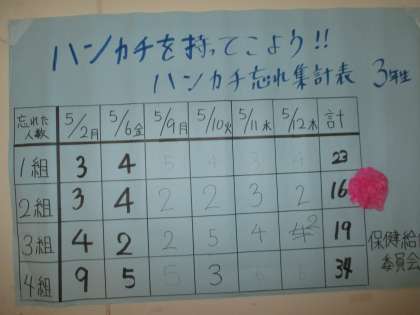 ハンカチを持ってこよう!!
ハンカチ忘れ集計表 3年生
忘れた人数 5/2月 5/6金 5/9月 5/10火 5/11水 5/12木 計
1組 3 4 5 4 3 4 23
2組 3 4 2 2 3 2 16
3組 4 2 2 5 4 2 19
4組 9 5 5 3 6 6 34
保健給食
委員会